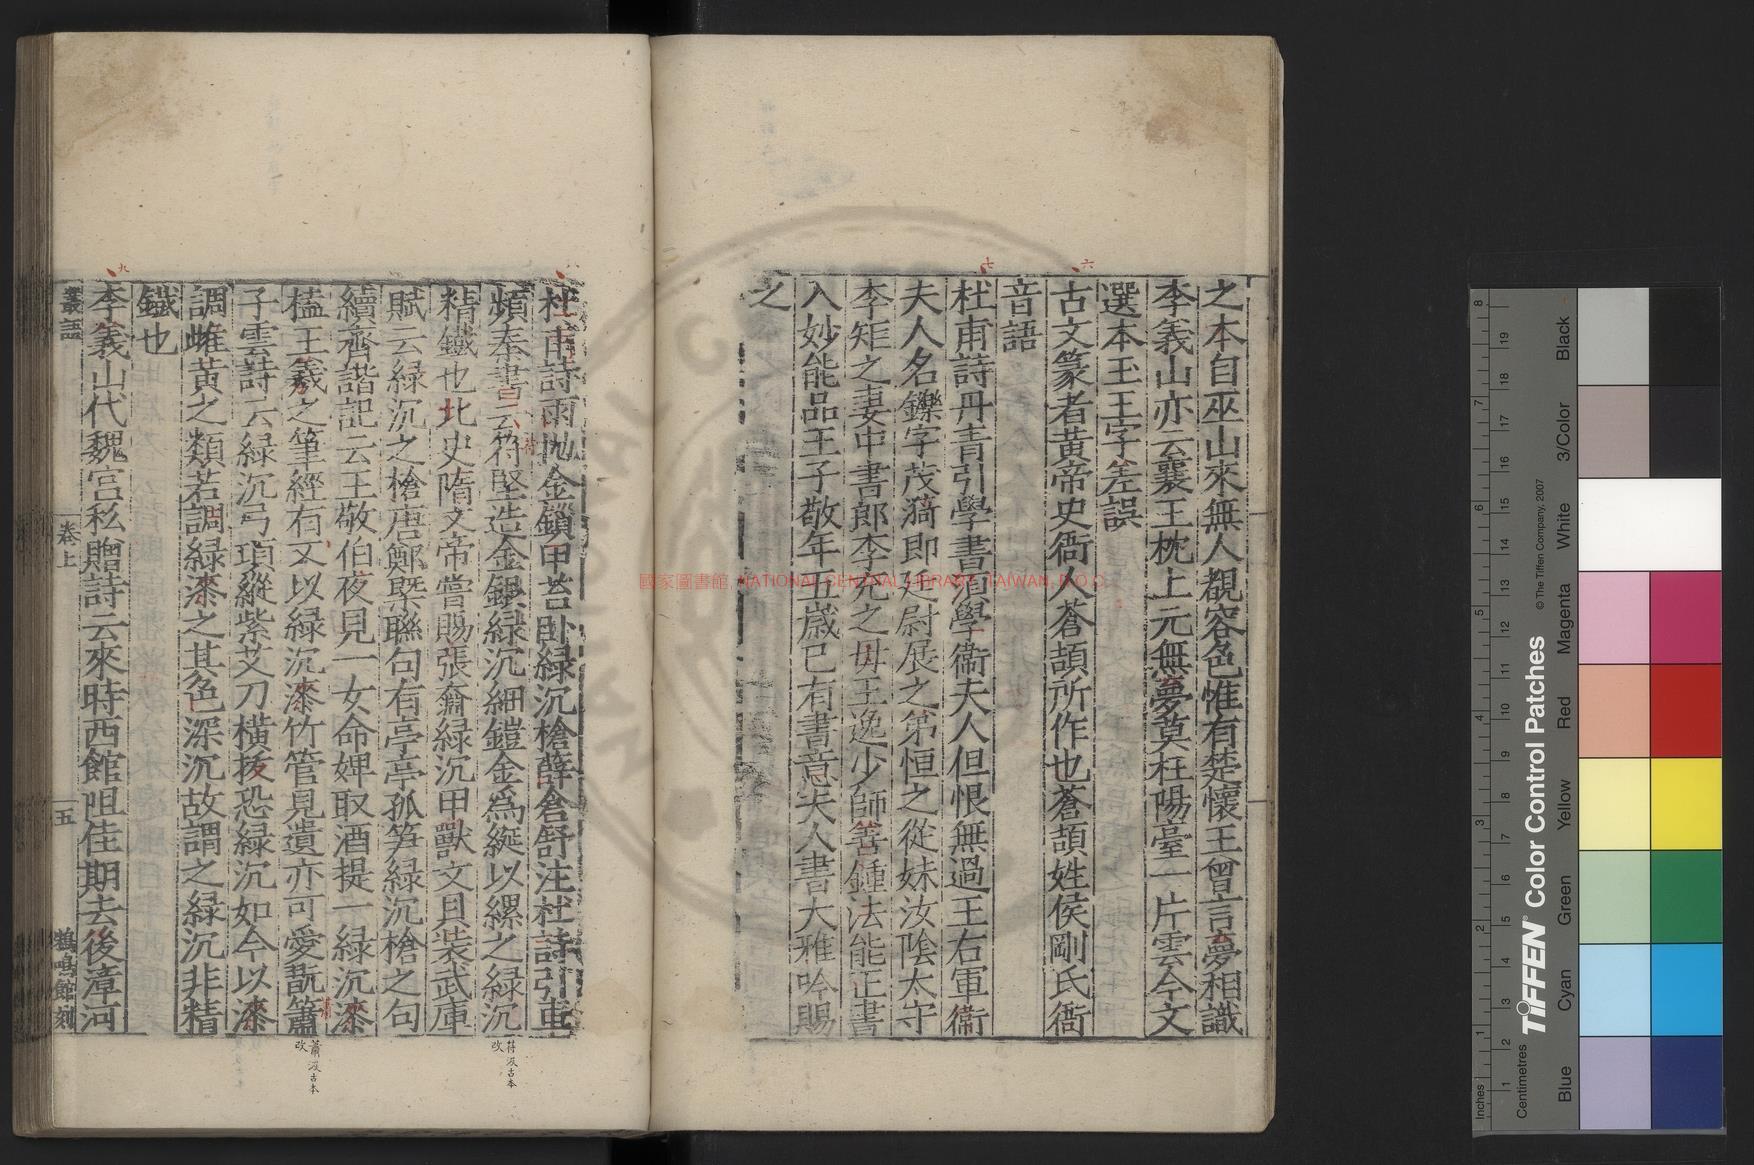 之本自巫山來無人覩容色惟有楚懷王曾言夢相識
李義山亦云襄王枕上元無夢莫枉陽臺一片雲今文
選本玉王字差誤
古文篆者黃帝史衙人蒼頡所作也蒼頡姓侯剛氏衙
音語
杜甫詩丹青引學書須學衞夫人但恨無過王右軍衞
夫人名鑠字茂漪即廷尉展之第恒之從妹汝陰太守
李矩之妻中書郎李充之母王逸少師善鍾法能正書
入妙能品王子敬年五歲已有書意夫人書大雅吟賜
之
杜甫詩雨抛金鎖甲苔卧綠沉槍薛倉舒注杜詩引車
頻秦書云符堅造金銀綠沉細鎧金爲綖以縲之綠沉
精鐵也北史隋文帝嘗賜張奫綠沉甲獸文具裝武庫
賦云綠沉之槍唐鄭槩聯句有亭亭孤笋綠沉槍之句
續齊諧記云王敬伯夜見一女命婢取酒提一綠沉漆
榼王羲之筆經有文以綠沉漆竹管見遺亦可愛翫簫
子雲詩云綠沉弓項縱紫艾刀橫拔恐綠沉如今以漆
調雌黃之類若調綠漆之其色深沉故謂之綠沉非精
鐵也
李義山代魏宮私贈詩云來時西館阻佳期去後漳河
叢語
卷上
五
鶴鳴館刻
六
七
九
苻
蕭
苻汲古本
改
蕭汲古本
改
國家圖書館 NATIONAL CENTRAL LIBRARY, TAIWAN, R.O.C
TIFFEN® Color Control Patches
© The Tiffen Company, 2007
Inches
Centimetres
Blue
Cyan
Green
Yellow
Red
Magenta
White
3/Color
Black